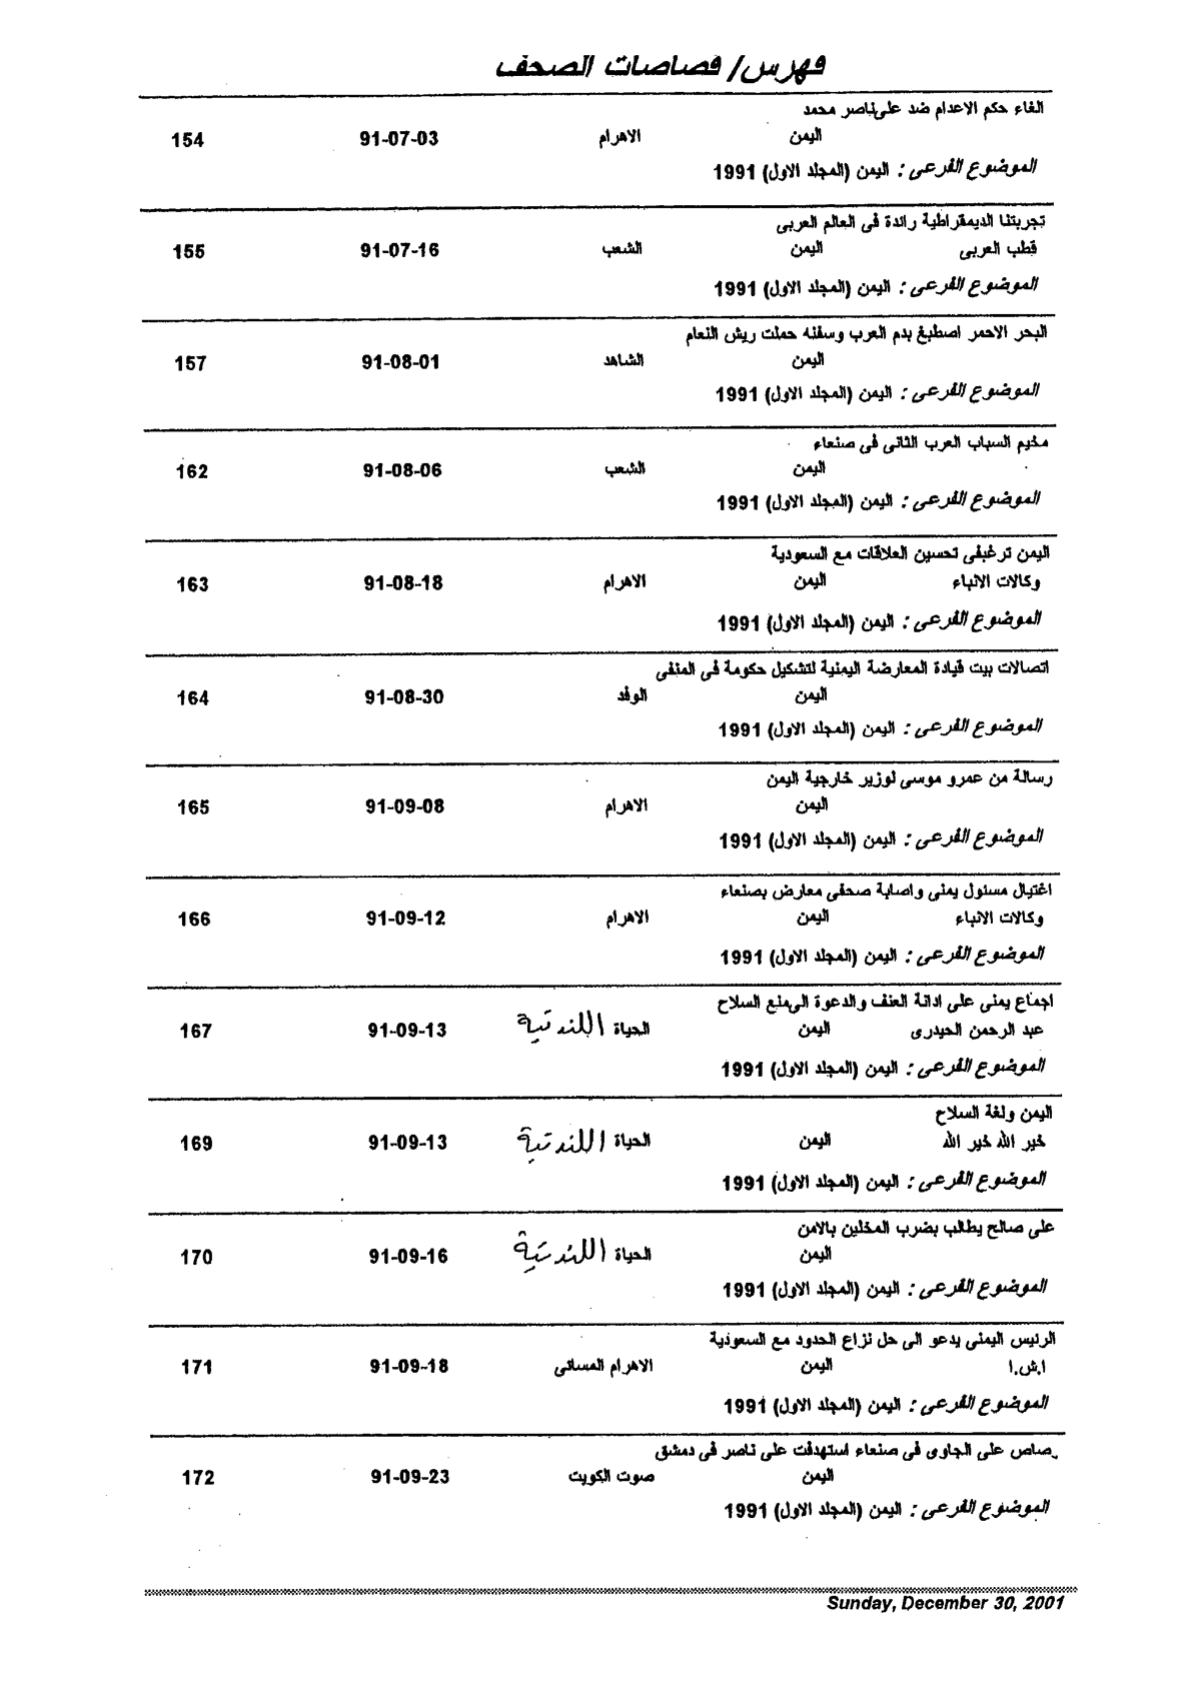 فهرس/ قصاصات الصحف
الغاء حكم الاعدام ضد على ناصر محمد
اليمن الاهرام 91-07-03 154
الموضوع الفرعى : اليمن (المجلد الاول) 1991
تجربتنا الديمقراطية رائدة فى العالم العربى
قطب العربى اليمن الشعب 91-07-16 155
الموضوع الفرعى : اليمن (المجلد الاول) 1991
البحر الاحمر اصطبغ بدم العرب وسفنه حملت ريش النعام
اليمن الشاهد 91-08-01 157
الموضوع الفرعى : اليمن (المجلد الاول) 1991
مخيم السباب العرب الثانى فى صنعاء
اليمن الشعب 91-08-06 162
الموضوع الفرعى : اليمن (المجلد الاول) 1991
اليمن ترغبفى تحسين العلاقات مع السعودية
وكالات الانباء اليمن الاهرام 91-08-18 163
الموضوع الفرعى : اليمن (المجلد الاول) 1991
اتصالات بيت قيادة المعارضة اليمنية لتشكيل حكومة فى المنفى
اليمن الوفد 91-08-30 164
الموضوع الفرعى : اليمن (المجلد الاول) 1991
رسالة من عمرو موسى لوزير خارجية اليمن
اليمن الاهرام 91-09-08 165
الموضوع الفرعى : اليمن (المجلد الاول) 1991
اغتيال مسئول يمنى واصابة صحفى معارض بصنعاء
وكالات الانباء اليمن الاهرام 91-09-12 166
الموضوع الفرعى : اليمن (المجلد الاول) 1991
اجماع يمنى على ادانة العنف والدعوة الىمنع السلاح
عبد الرحمن الحيدرى اليمن الحياة اللندنية 91-09-13 167
الموضوع الفرعى : اليمن (المجلد الاول) 1991
اليمن ولغة السلاح
خير الله خير الله اليمن الحياة اللندنية 91-09-13 169
الموضوع الفرعى : اليمن (المجلد الاول) 1991
على صالح يطالب بضرب المخلين بالامن
اليمن الحياة اللندنية 91-09-16 170
الموضوع الفرعى : اليمن (المجلد الاول) 1991
الرئيس اليمنى يدعو الى حل نزاع الحدود مع السعودية
ا.ش.ا اليمن الاهرام المسائى 91-09-18 171
الموضوع الفرعى : اليمن (المجلد الاول) 1991
رصاص على الجاوى فى صنعاء استهدفت على ناصر فى دمشق
اليمن صوت الكويت 91-09-23 172
الموضوع الفرعى : اليمن (المجلد الاول) 1991
Sunday, December 30, 2001